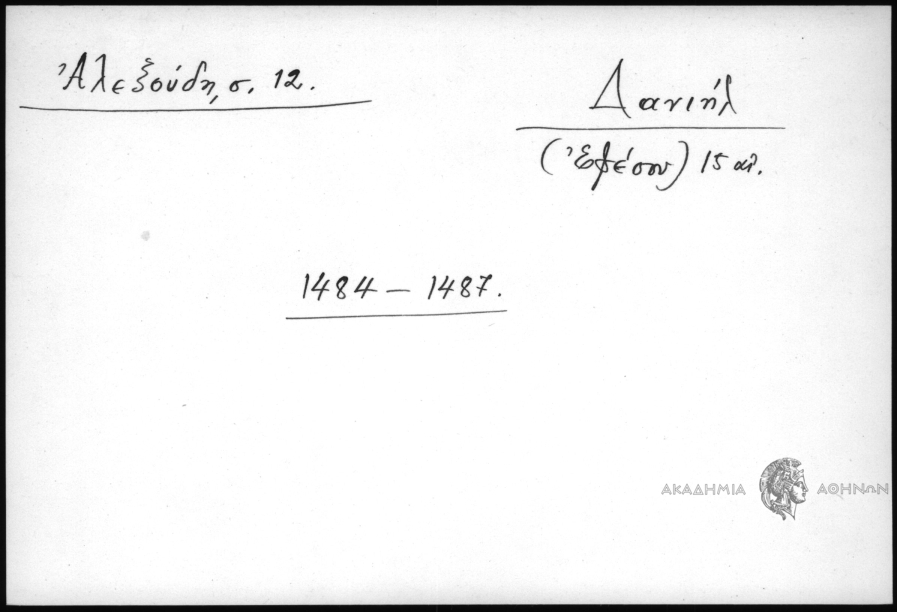 Ἀλεξούδη, σ. 12.
Δανιήλ
(Ἐφέσου) 15 αἰ.
1484 – 1487.
ΑΚΑΔΗΜΙΑ ΑΘΗΝΩΝ